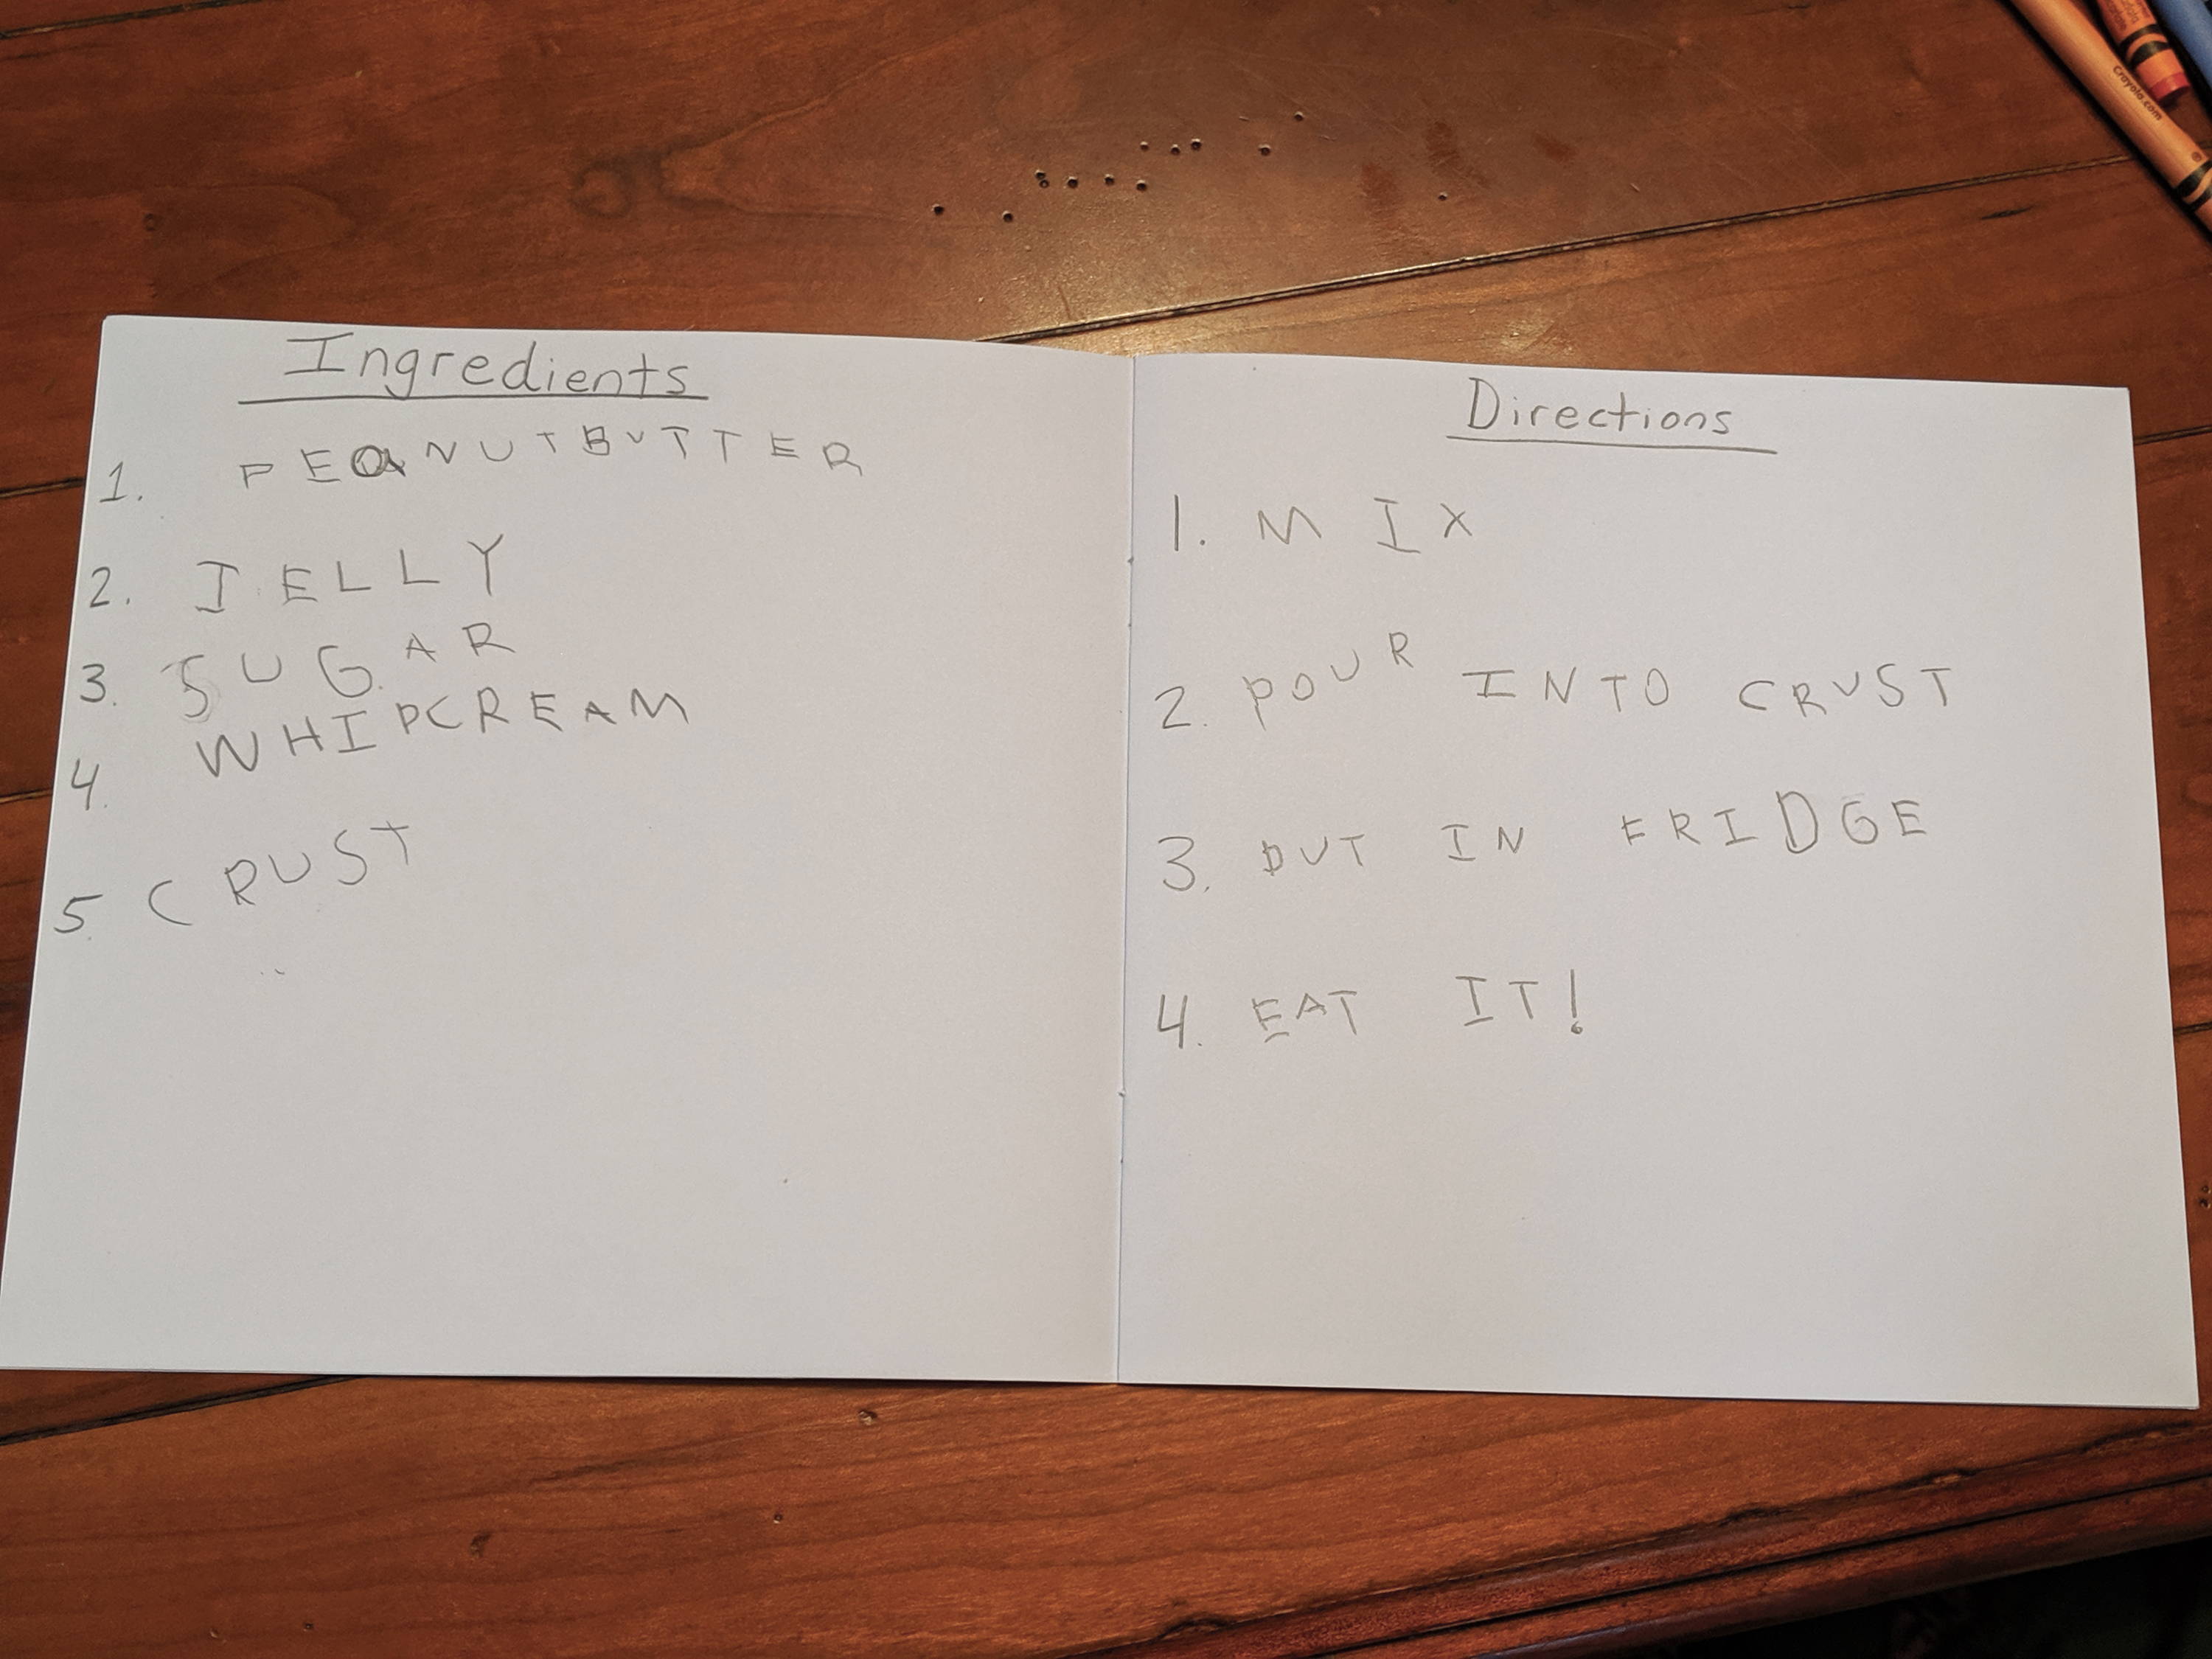 Ingredients
1. PEANUTBUTTER
2. JELLY
3. SUGAR
4. WHIPCREAM
5. CRUST
Directions
1. MIX
2. POUR INTO CRUST
3. PUT IN FRIDGE
4. EAT IT!
Crayola.com